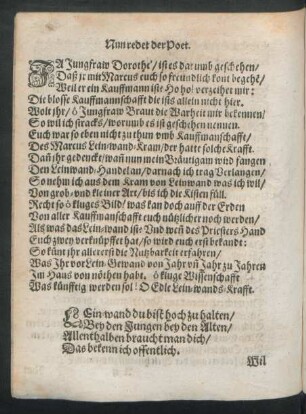 Nun redet der Poet.
JA Jungfraw Dorothe'/ ist es darumb geschehen/
Daß jr mit Marcus euch so freundlich kont begehē/
Weil er ein Kauffmann ist? Hoho! verzeihet mir:
Die blosse Kauffmannschafft die ists allein nicht hier.
Wolt jhr/ ô Jungfraw Braut die Warheit mir bekennen/
So wil ich stracks/ worumb es ist geschehen nennen.
Euch war so eben nicht zu thun vmb Kauffmanschafft/
Des Marcus Lein-wand-Kram/ der hatte solche Krafft.
Dañ jhr gedenckt/ wañ nun mein Bräutigam wird fangen
Den Leinwand-Handel an/ darnach ich trag Verlangen/
So nehm ich aus dem Kram von Leinwand was ich wil/
Von grob- und kleiner Art/ bis ich die Kisten füll.
Recht so ô kluges Bild/ was kan doch auff der Erden
Von aller Kauffmanschafft euch nützlicher noch werden/
Als was das Lein-wand iste Vnd weñ des Priesters Hand
Euch zwey verknüpffet hat/ so wird euch erst bekandt:
So köñt jhr allererst die Nutzbarkeit erfahren/
Was Jhr vor Lein-Gewand von Jahr vñ Jahr zu Jahren
Im Haus von nöthen habt. ô kluge Wissenschafft
Was künfftig werden sol! O Edle Lein-wands-Krafft.
LEin-wand du bist hoch zu halten/
Bey den Jungen bey den Alten/
Allenthalben braucht man dich/
Das bekenn ich offentlich.
Wil